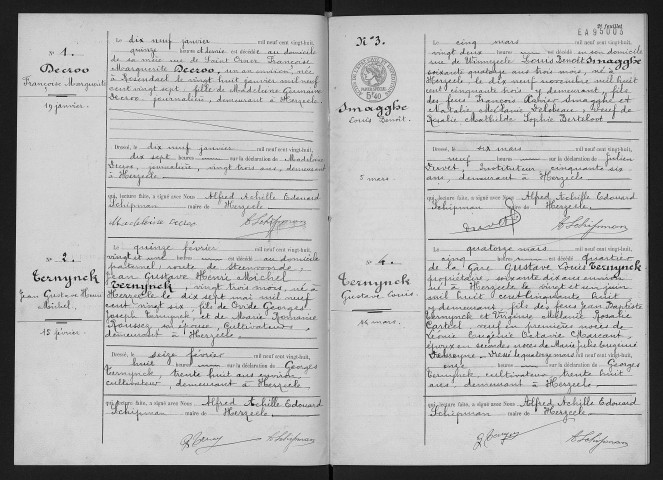 N° 1.
Decroo
Françoise Marguerite
19 janvier.
Le dix neuf janvier mil neuf cent vingt-huit,
quinze heures est décédée au domicile
de sa mère rue de Saint Omer Françoise
Marguerite Decroo, un an environ, née
à Rosendael le vingt huit janvier mil neuf
cent vingt sept, fille de Madeleine Germaine
Decroo journalière, demeurant à Herzeele
Dressé, le dix neuf janvier mil neuf cent vingt-huit,
dix sept heures sur la déclaration de Madeleine
Decroo, journalière, vingt trois ans, demeurant
à Herzeele
qui, lecture faite, a signé avec Nous Alfred Achille Edouard
Schipman maire de Herzeele
Madeleine Decroo A Schipman
N° 2.
Ternynck
Jean Gustave Henri
Michel.
15 février.
Le quinze février mil neuf cent vingt-huit,
vingt et une heures est décédé au domicile
paternel, route de Steenvoorde,
Jean Gustave Henri Michel
Ternynck, vingt trois mois, né à
Herzeele le dix sept mai mil neuf
cent vingt six, fils de Ovide Georges
Joseph Ternynck, et de Marie Romanie
Roussez son épouse, Cultivateurs
demeurant à Herzeele
Dressé, le seize février mil neuf cent vingt-huit,
huit heures sur la déclaration de Georges
Ternynck trente huit ans environ,
cultivateur demeurant à Herzeele
qui, lecture faite, a signé avec Nous Alfred Achille Edouard
Schipman maire de Herzeele
A Schipman
2e feuillet
N° 3.
Smagghe
Louis Benoît.
5 mars.
Le cinq mars mil neuf cent vingt-huit,
vingt deux heures est décédé en son domicile
rue de Wormhoudt Louis Benoît Smagghe
soixante quatorze ans trois mois, né à
Herzeele le dix neuf novembre mil huit
cent cinquante trois y demeurant, fils
des feus François Xavier Smagghe et
Natalie Mélanie Delobeau veuf de
Rosalie Mathilde Sophie Berteloot
Dressé, le six mars mil neuf cent vingt-huit,
neuf heures sur la déclaration de Julien
Instituteur cinquante six
ans, demeurant à Herzeele
qui, lecture faite, a signé avec Nous Alfred Achille Edouard
Schipman maire de Herzeele
A Schipman
N° 4.
Ternynck
Gustave Louis.
14 mars.
Le quatorze mars mil neuf cent vingt-huit,
cinq heures est décédé Quartier
de la Gare Gustave Louis Ternynck
propriétaire, soixante dix ans environ
né à Herzeele le vingt et un juin
mil huit cent cinquante huit
y demeurant, fils des feus Jean Baptiste
Ternynck et Virginie Mélanie Rosalie
veuf en premières noces de
Léonie Eugénie Octavie Marcant
époux en secondes noces de Marie Julie Eugénie
Dressé, le quatorze mars mil neuf cent vingt-huit,
onze heures sur la déclaration de Georges
Ternynck cultivateur trente huit
ans, demeurant à Herzeele
qui, lecture faite, a signé avec Nous Alfred Achille Edouard
Schipman maire de Herzeele
A Schipman